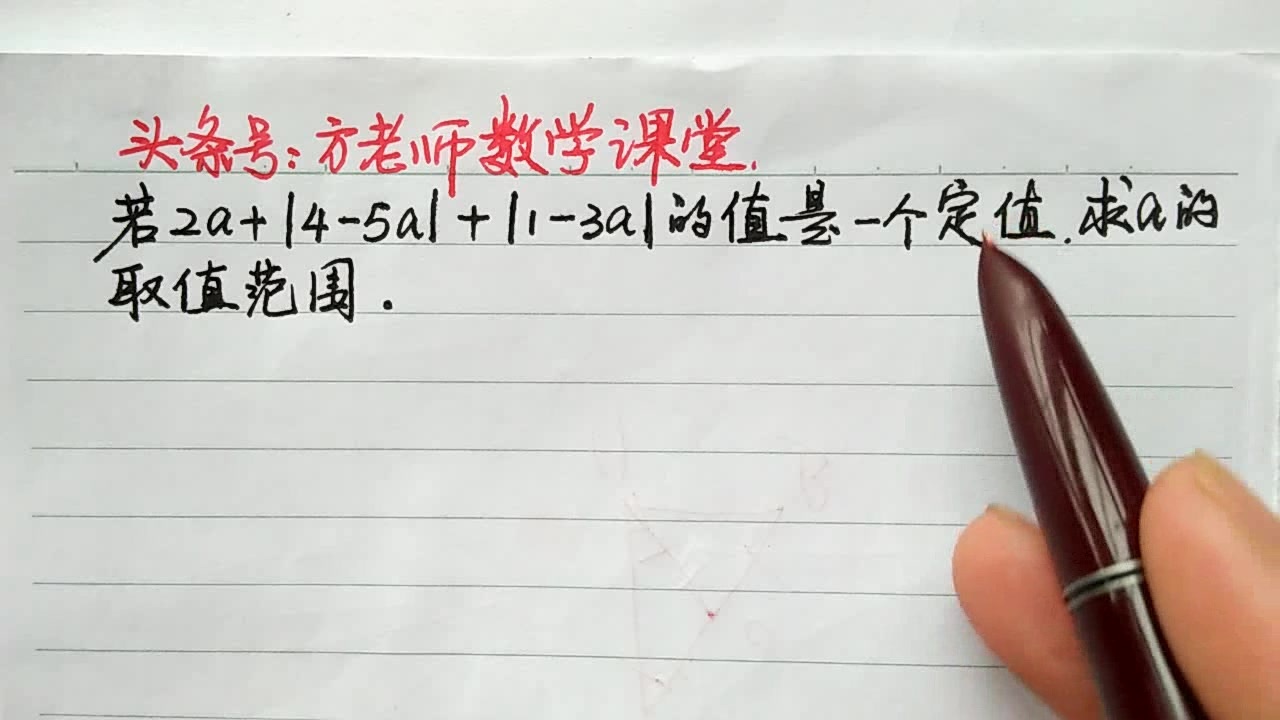 头条号:方老师数学课堂.
若2a+|4-5a|+|1-3a|的值是一个定值.求a的
取值范围.